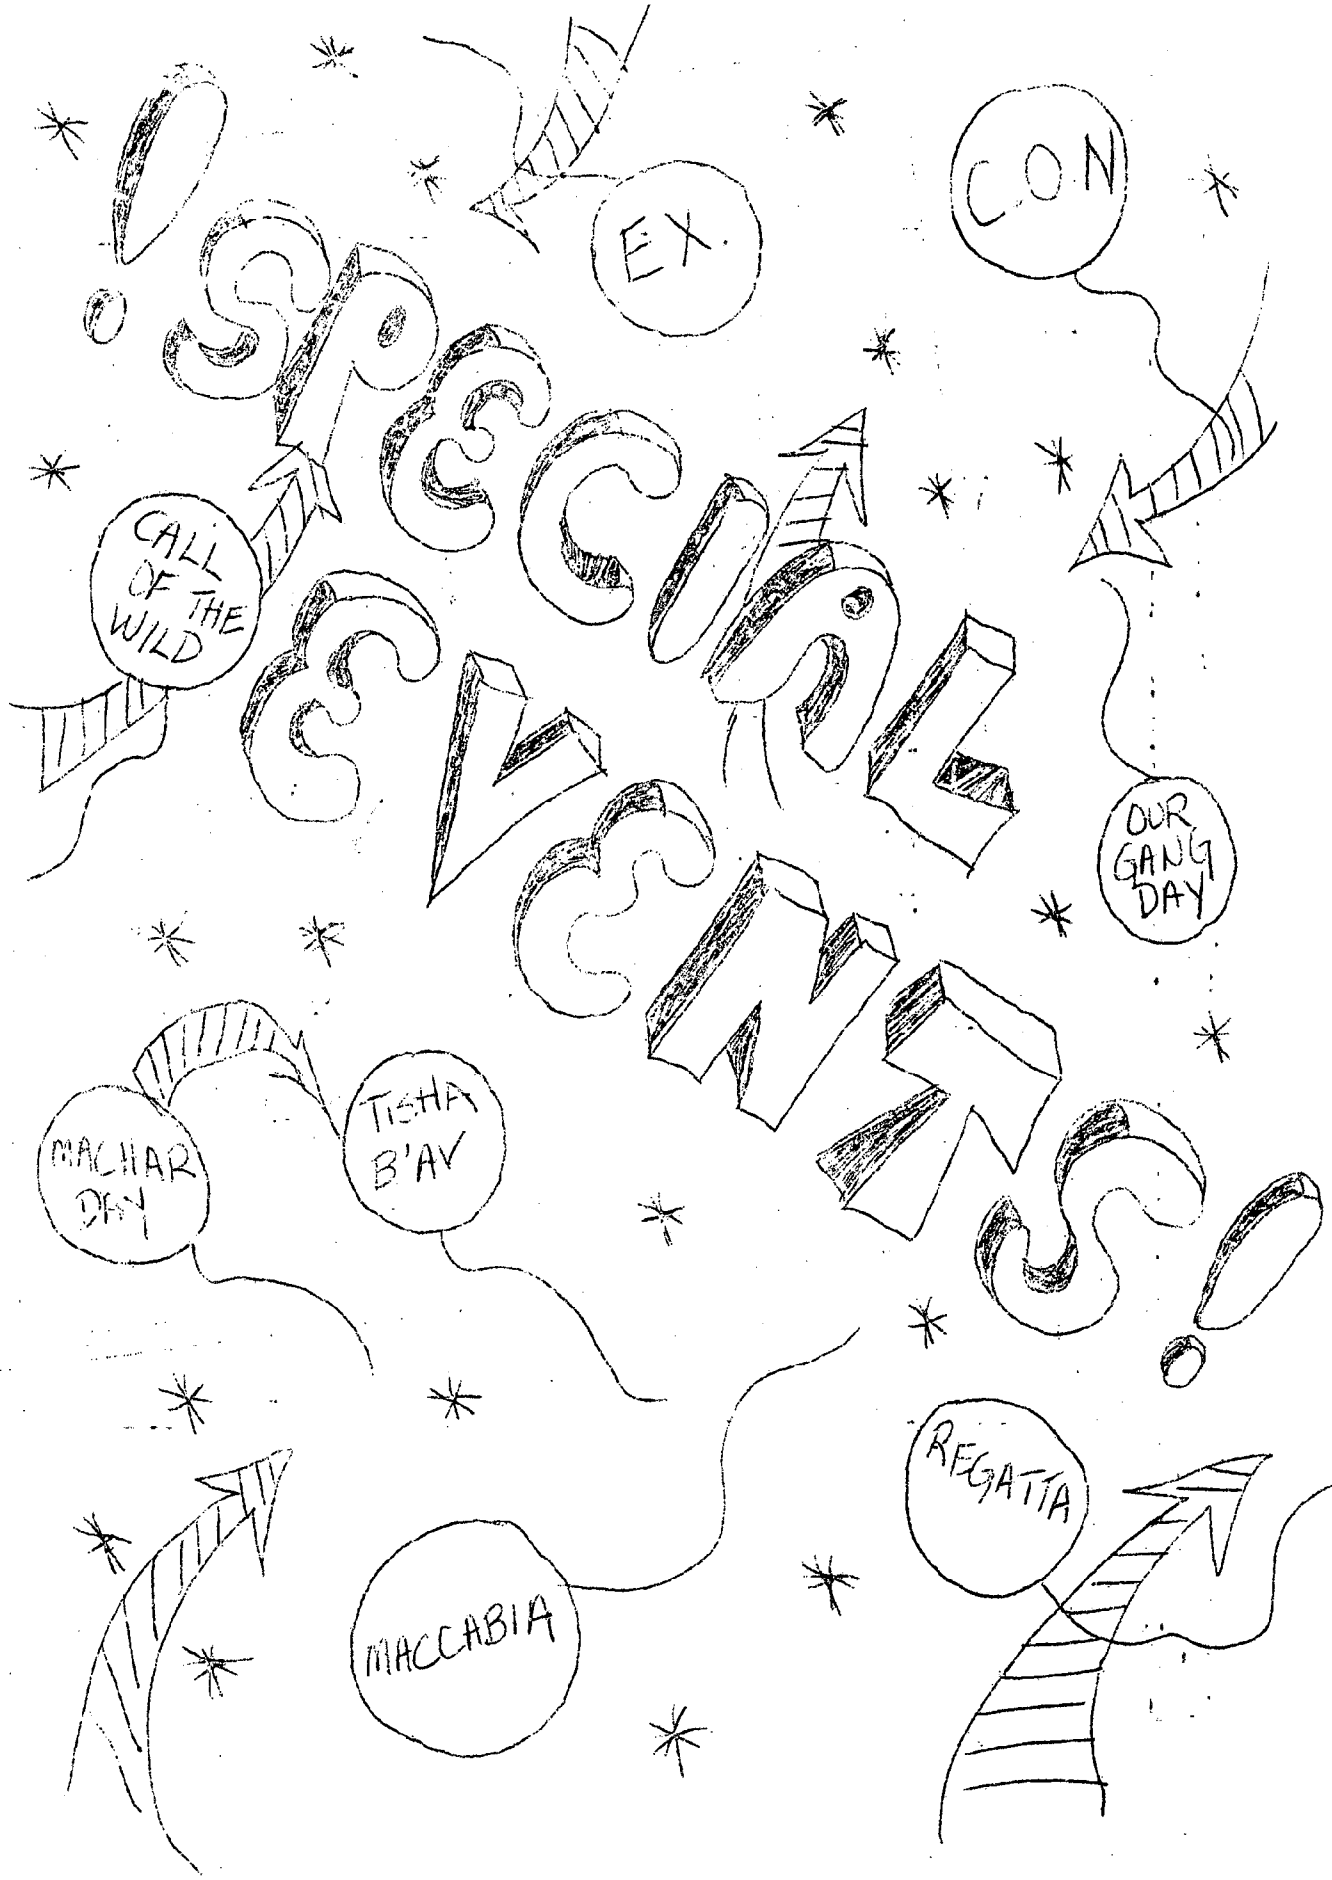 CON
EX.
! SPECIAL
EVENTS!
CALL
OF THE
WILD
OUR
GANG
DAY
MACHAR
DAY
TISHA
B'AV
REGATTA
MACCABIA